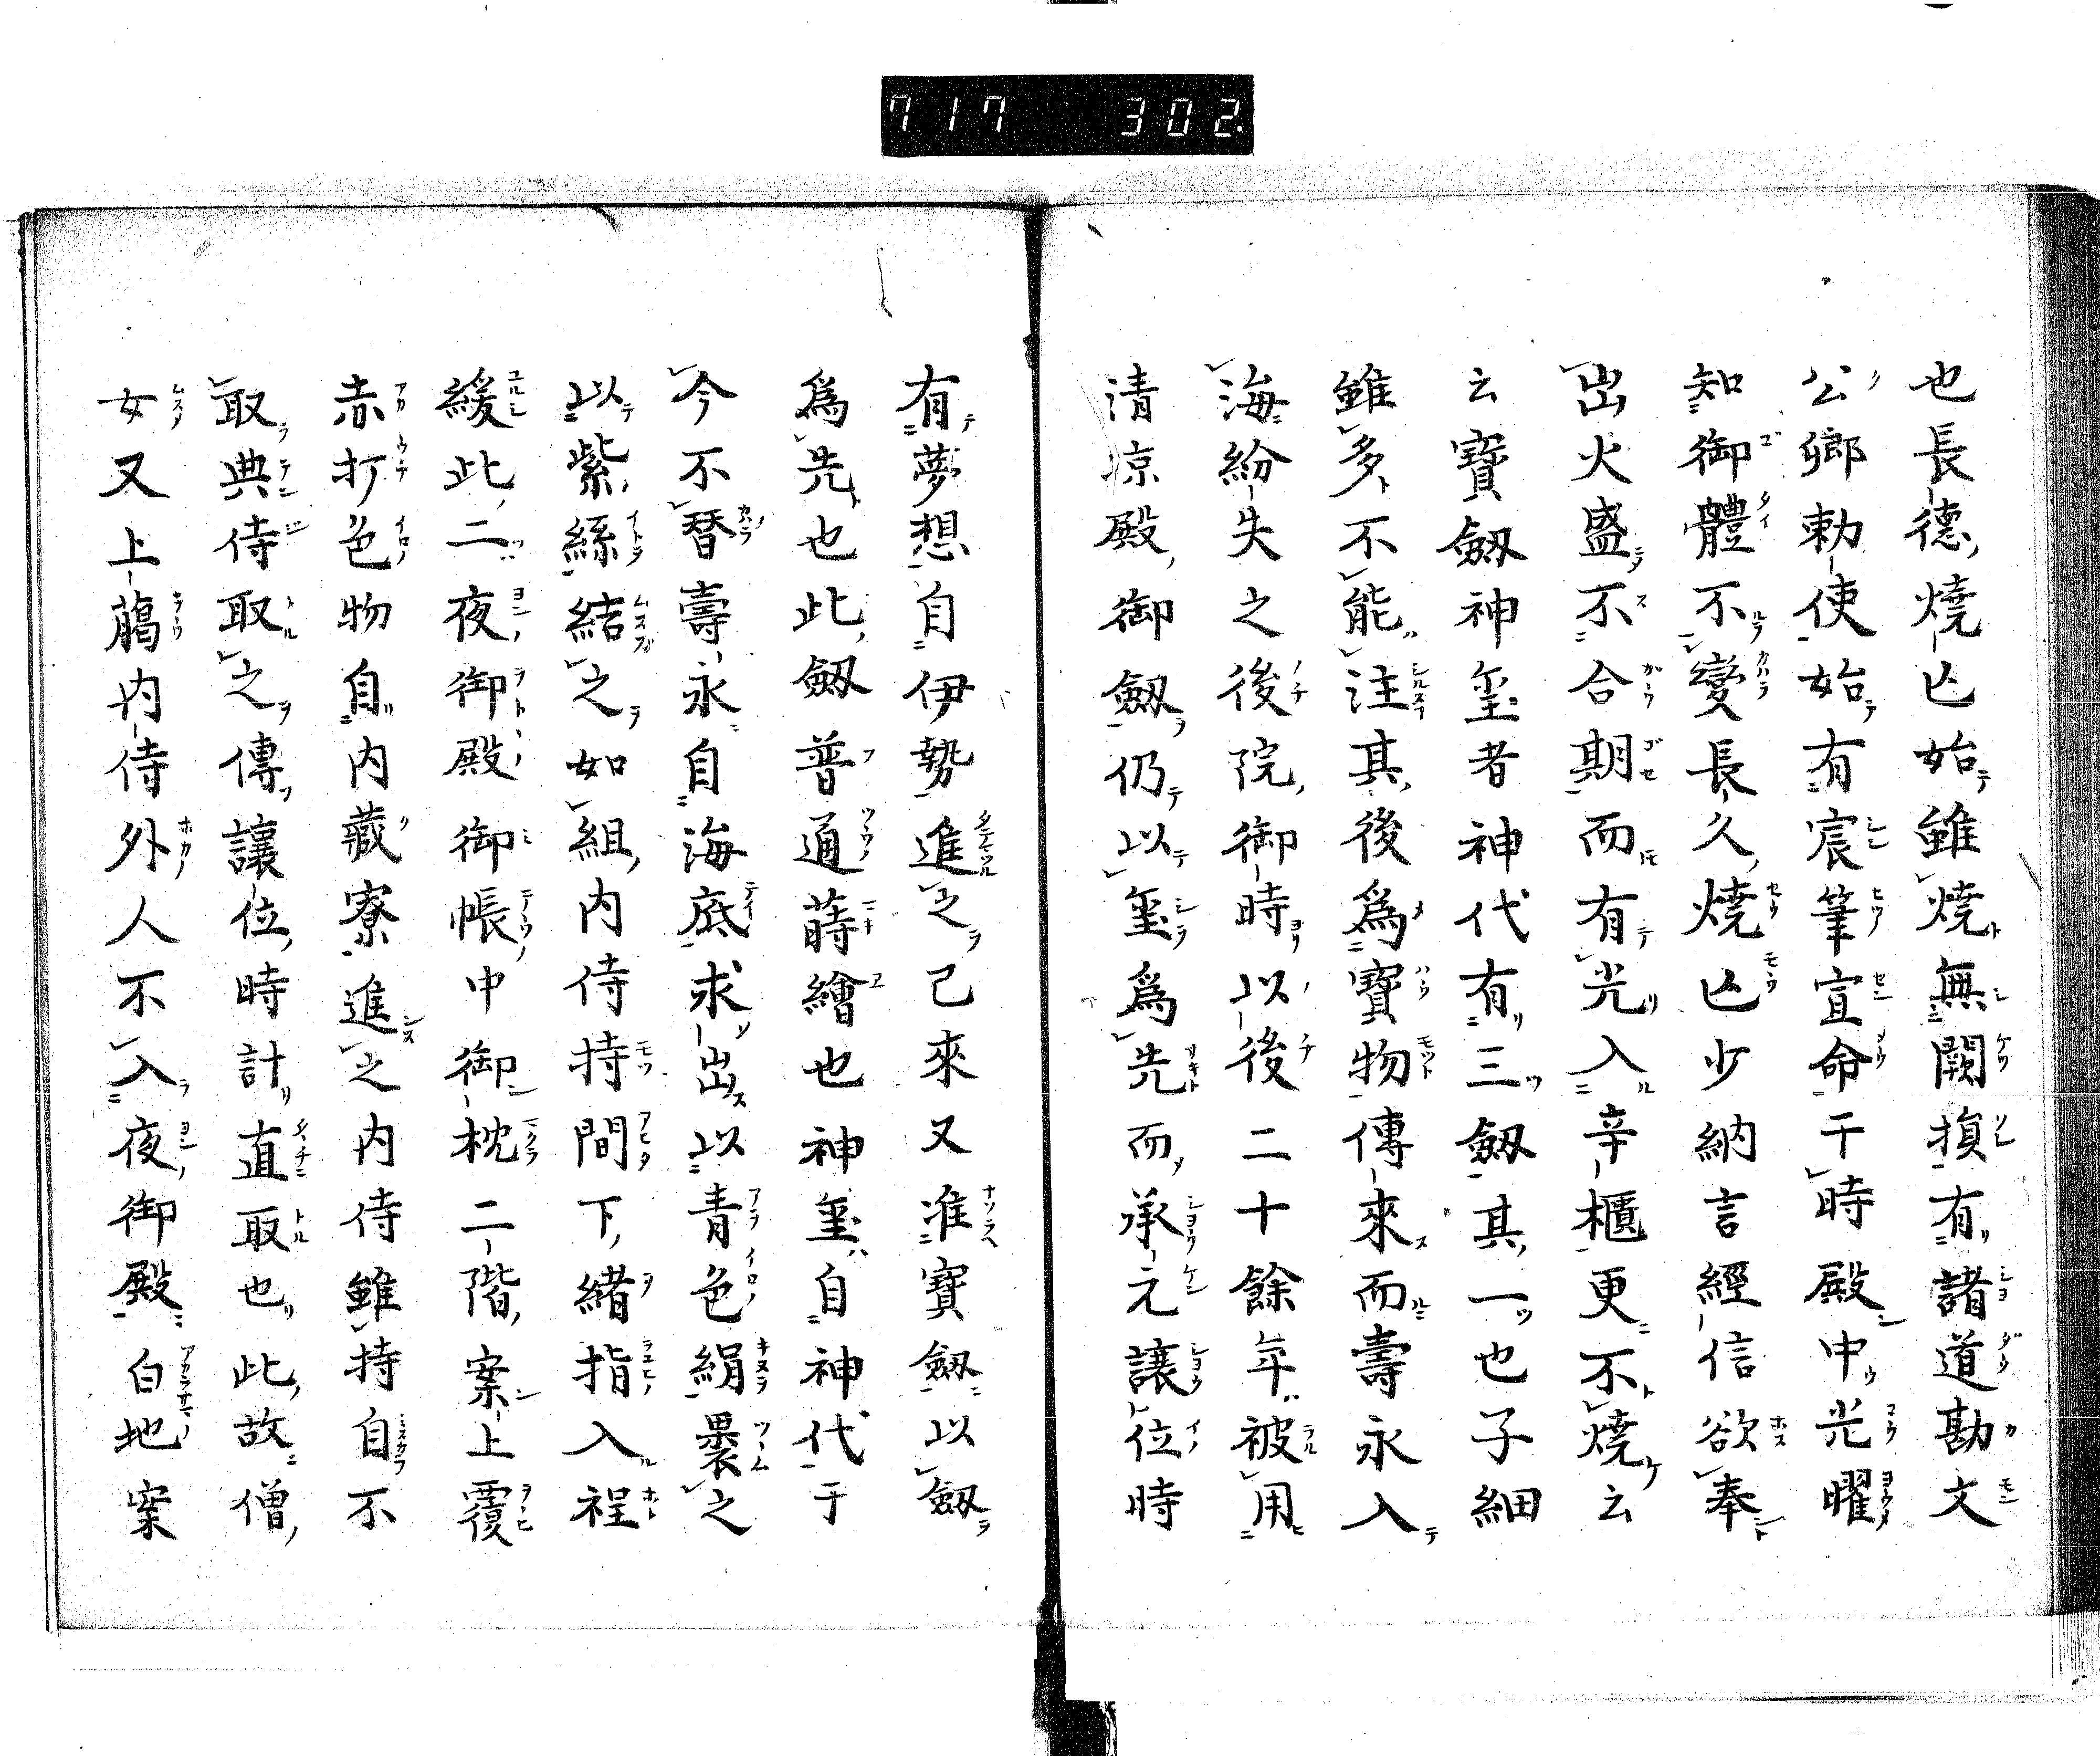 717 302.
也長德燒亡始雖燒無闕損有諸道勘文
公卿勅使始有宸筆宣命于時殿中光曜
知御體不變長久燒亡少納言經信欲奉
出火盛不合期而有光入辛櫃更不燒云
云寶劔神璽者神代有三劔其一也子細
雖多不能注其後爲寶物傳來而壽永入
海紛失之後院御時以後二十餘年被用
清凉殿御劔仍以璽爲先而承元讓位時
有夢想自伊勢進之已來又准寶劔以劔
爲先也此劔普通蒔繪也神璽自神代于
今不替壽永自海底求出以青色絹褁之
以紫絲結之如組内侍持間下緒指入程
緩此二夜御殿御帳中御枕二階案上覆
赤打色物自内藏寮進之内侍雖持自不
取典侍取之傳讓位時計直取也此故僧
女又上﨟内侍外人不入夜御殿白地案